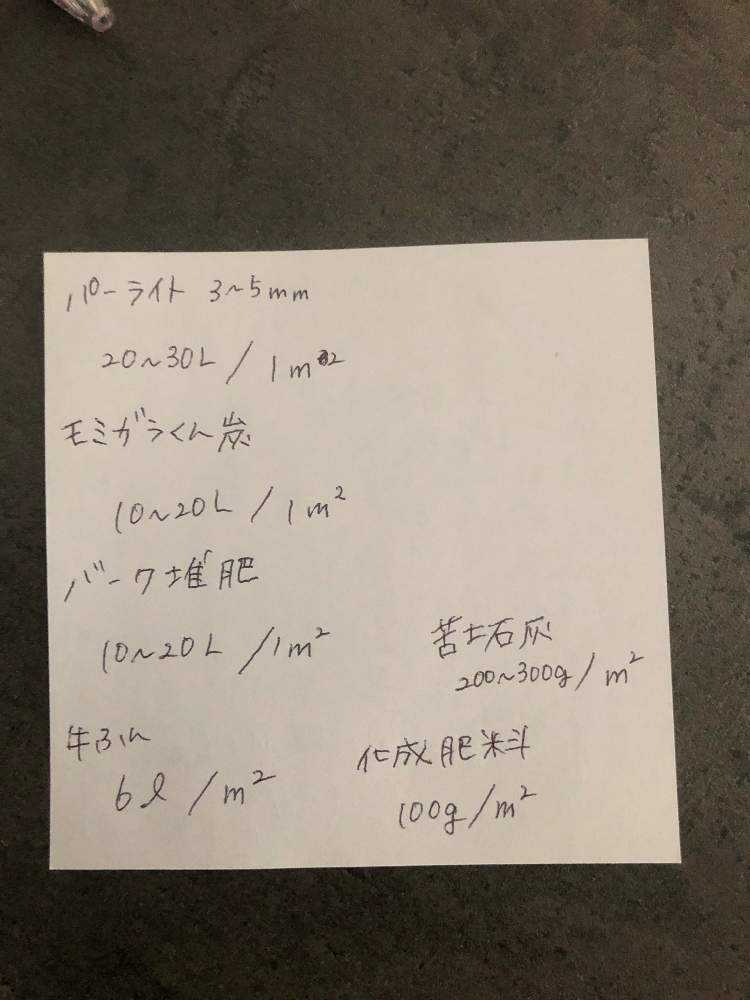 パーライト 3~5mm
20~30L / 1m2
モミガラくん炭
10~20L / 1m²
バーク堆肥
10~20L / 1m²
苦土石灰
200~300g / m²
牛ふん
6ℓ / m²
化成肥料
100g / m²